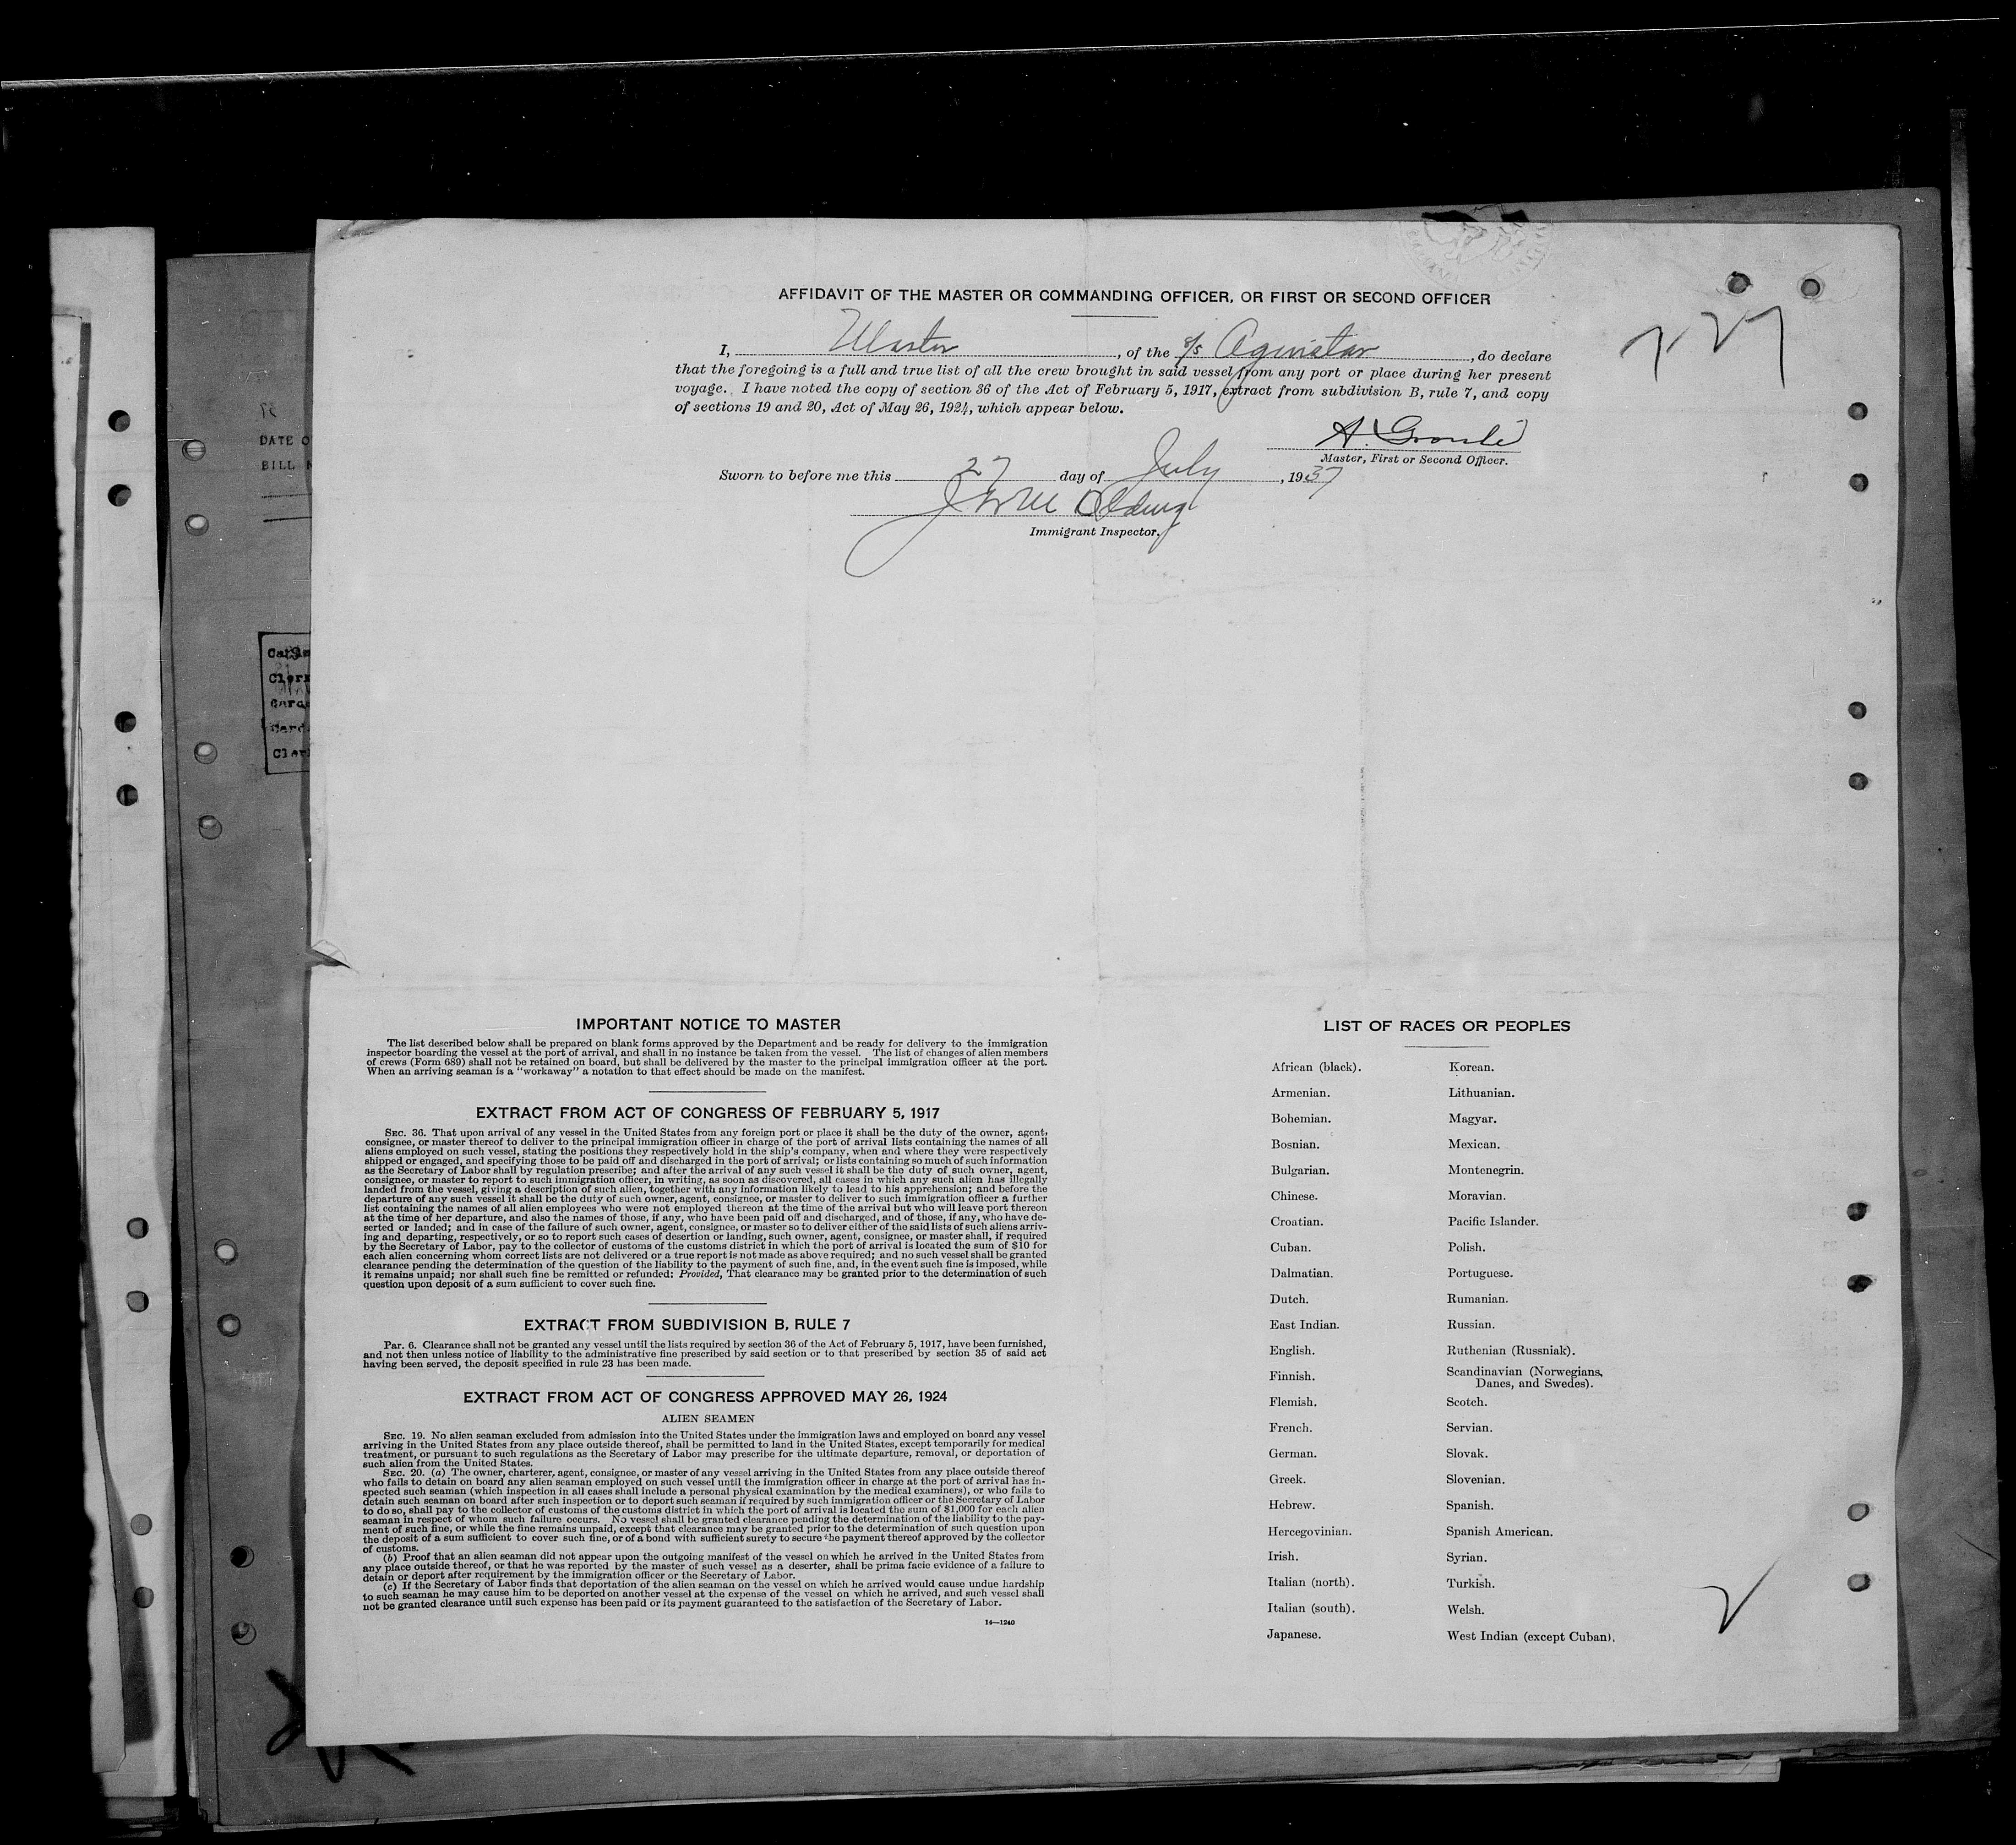 AFFIDAVIT OF THE MASTER OR COMMANDING OFFICER, OR FIRST OR SECOND OFFICER
I, Master, of the S/S Agwistar, do declare
that the foregoing is a full and true list of all the crew brought in said vessel from any port or place during her present
voyage. I have noted the copy of section 36 of the Act of February 5, 1917, extract from subdivision B, rule 7, and copy
of sections 19 and 20, Act of May 26, 1924, which appear below.
7.27
A.
Master, First or Second Officer.
Sworn to before me this 27 day of July, 1937
Immigrant Inspector.
DATE O
BILL
IMPORTANT NOTICE TO MASTER
The list described below shall be prepared on blank forms approved by the Department and be ready for delivery to the immigration
inspector boarding the vessel at the port of arrival, and shall in no instance be taken from the vessel. The list of changes of alien members
of crews (Form 689) shall not be retained on board, but shall be delivered by the master to the principal immigration officer at the port.
When an arriving seaman is a "workaway" a notation to that effect should be made on the manifest.
EXTRACT FROM ACT OF CONGRESS OF FEBRUARY 5, 1917
SEC. 36. That upon arrival of any vessel in the United States from any foreign port or place it shall be the duty of the owner, agent,
consignee, or master thereof to deliver to the principal immigration officer in charge of the port of arrival lists containing the names of all
aliens employed on such vessel, stating the positions they respectively hold in the ship's company, when and where they were respectively
shipped or engaged, and specifying those to be paid off and discharged in the port of arrival; or lists containing so much of such information
as the Secretary of Labor shall by regulation prescribe; and after the arrival of any such vessel it shall be the duty of such owner, agent,
consignee, or master to report to such immigration officer, in writing, as soon as discovered, all cases in which any such alien has illegally
landed from the vessel, giving a description of such alien, together with any information likely to lead to his apprehension; and before the
departure of any such vessel it shall be the duty of such owner, agent, consignee, or master to deliver to such immigration officer a further
list containing the names of all alien employees who were not employed thereon at the time of the arrival but who will leave port thereon
at the time of her departure, and also the names of those, if any, who have been paid off and discharged, and of those, if any, who have de-
serted or landed; and in case of the failure of such owner, agent, consignee, or master so to deliver either of the said lists of such aliens arriv-
ing and departing, respectively, or so to report such cases of desertion or landing, such owner, agent, consignee, or master shall, if required
by the Secretary of Labor, pay to the collector of customs of the customs district in which the port of arrival is located the sum of $10 for
each alien concerning whom correct lists are not delivered or a true report is not made as above required; and no such vessel shall be granted
clearance pending the determination of the question of the liability to the payment of such fine, and, in the event such fine is imposed, while
it remains unpaid; nor shall such fine be remitted or refunded: Provided, That clearance may be granted prior to the determination of such
question upon deposit of a sum sufficient to cover such fine.
EXTRACT FROM SUBDIVISION B, RULE 7
PAR. 6. Clearance shall not be granted any vessel until the lists required by section 36 of the Act of February 5, 1917, have been furnished,
and not then unless notice of liability to the administrative fine prescribed by said section or to that prescribed by section 35 of said act
having been served, the deposit specified in rule 23 has been made.
EXTRACT FROM ACT OF CONGRESS APPROVED MAY 26, 1924
ALIEN SEAMEN
SEC. 19. No alien seaman excluded from admission into the United States under the immigration laws and employed on board any vessel
arriving in the United States from any place outside thereof, shall be permitted to land in the United States, except temporarily for medical
treatment, or pursuant to such regulations as the Secretary of Labor may prescribe for the ultimate departure, removal, or deportation of
such alien from the United States.
SEC. 20. (a) The owner, charterer, agent, consignee, or master of any vessel arriving in the United States from any place outside thereof
who fails to detain on board any alien seaman employed on such vessel until the immigration officer in charge at the port of arrival has in-
spected such seaman (which inspection in all cases shall include a personal physical examination by the medical examiners), or who fails to
detain such seaman on board after such inspection or to deport such seaman if required by such immigration officer or the Secretary of Labor
to do so, shall pay to the collector of customs of the customs district in which the port of arrival is located the sum of $1,000 for each alien
seaman in respect of whom such failure occurs. No vessel shall be granted clearance pending the determination of the liability to the pay-
ment of such fine, or while the fine remains unpaid, except that clearance may be granted prior to the determination of such question upon
the deposit of a sum sufficient to cover such fine, or of a bond with sufficient surety to secure the payment thereof approved by the collector
of customs.
(b) Proof that an alien seaman did not appear upon the outgoing manifest of the vessel on which he arrived in the United States from
any place outside thereof, or that he was reported by the master of such vessel as a deserter, shall be prima facie evidence of a failure to
detain or deport after requirement by the immigration officer or the Secretary of Labor.
(c) If the Secretary of Labor finds that deportation of the alien seaman on the vessel on which he arrived would cause undue hardship
to such seaman he may cause him to be deported on another vessel at the expense of the vessel on which he arrived, and such vessel shall
not be granted clearance until such expense has been paid or its payment guaranteed to the satisfaction of the Secretary of Labor.
14—1240
LIST OF RACES OR PEOPLES
African (black).
Armenian.
Bohemian.
Bosnian.
Bulgarian.
Chinese.
Croatian.
Cuban.
Dalmatian.
Dutch.
East Indian.
English.
Finnish.
Flemish.
French.
German.
Greek.
Hebrew.
Hercegovinian.
Irish.
Italian (north).
Italian (south).
Japanese.
Korean.
Lithuanian.
Magyar.
Mexican.
Montenegrin.
Moravian.
Pacific Islander.
Polish.
Portuguese.
Rumanian.
Russian.
Ruthenian (Russniak).
Scandinavian (Norwegians,
Danes, and Swedes).
Scotch.
Servian.
Slovak.
Slovenian.
Spanish.
Spanish American.
Syrian.
Turkish.
Welsh.
West Indian (except Cuban).